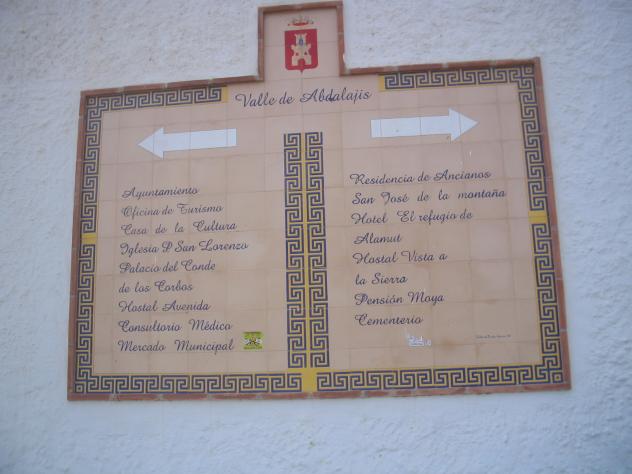 Valle de Abdalajis
Ayuntamiento
Oficina de Turismo
Casa de la Cultura
Iglesia P. San Lorenzo
Palacio del Conde
de los Corbos
Hostal Avenida
Consultorio Médico
Mercado Municipal
Residencia de Ancianos
San José de la montaña
Hotel El refugio de
Alamut
Hostal Vista a
la Sierra
Pensión Moya
Cementerio